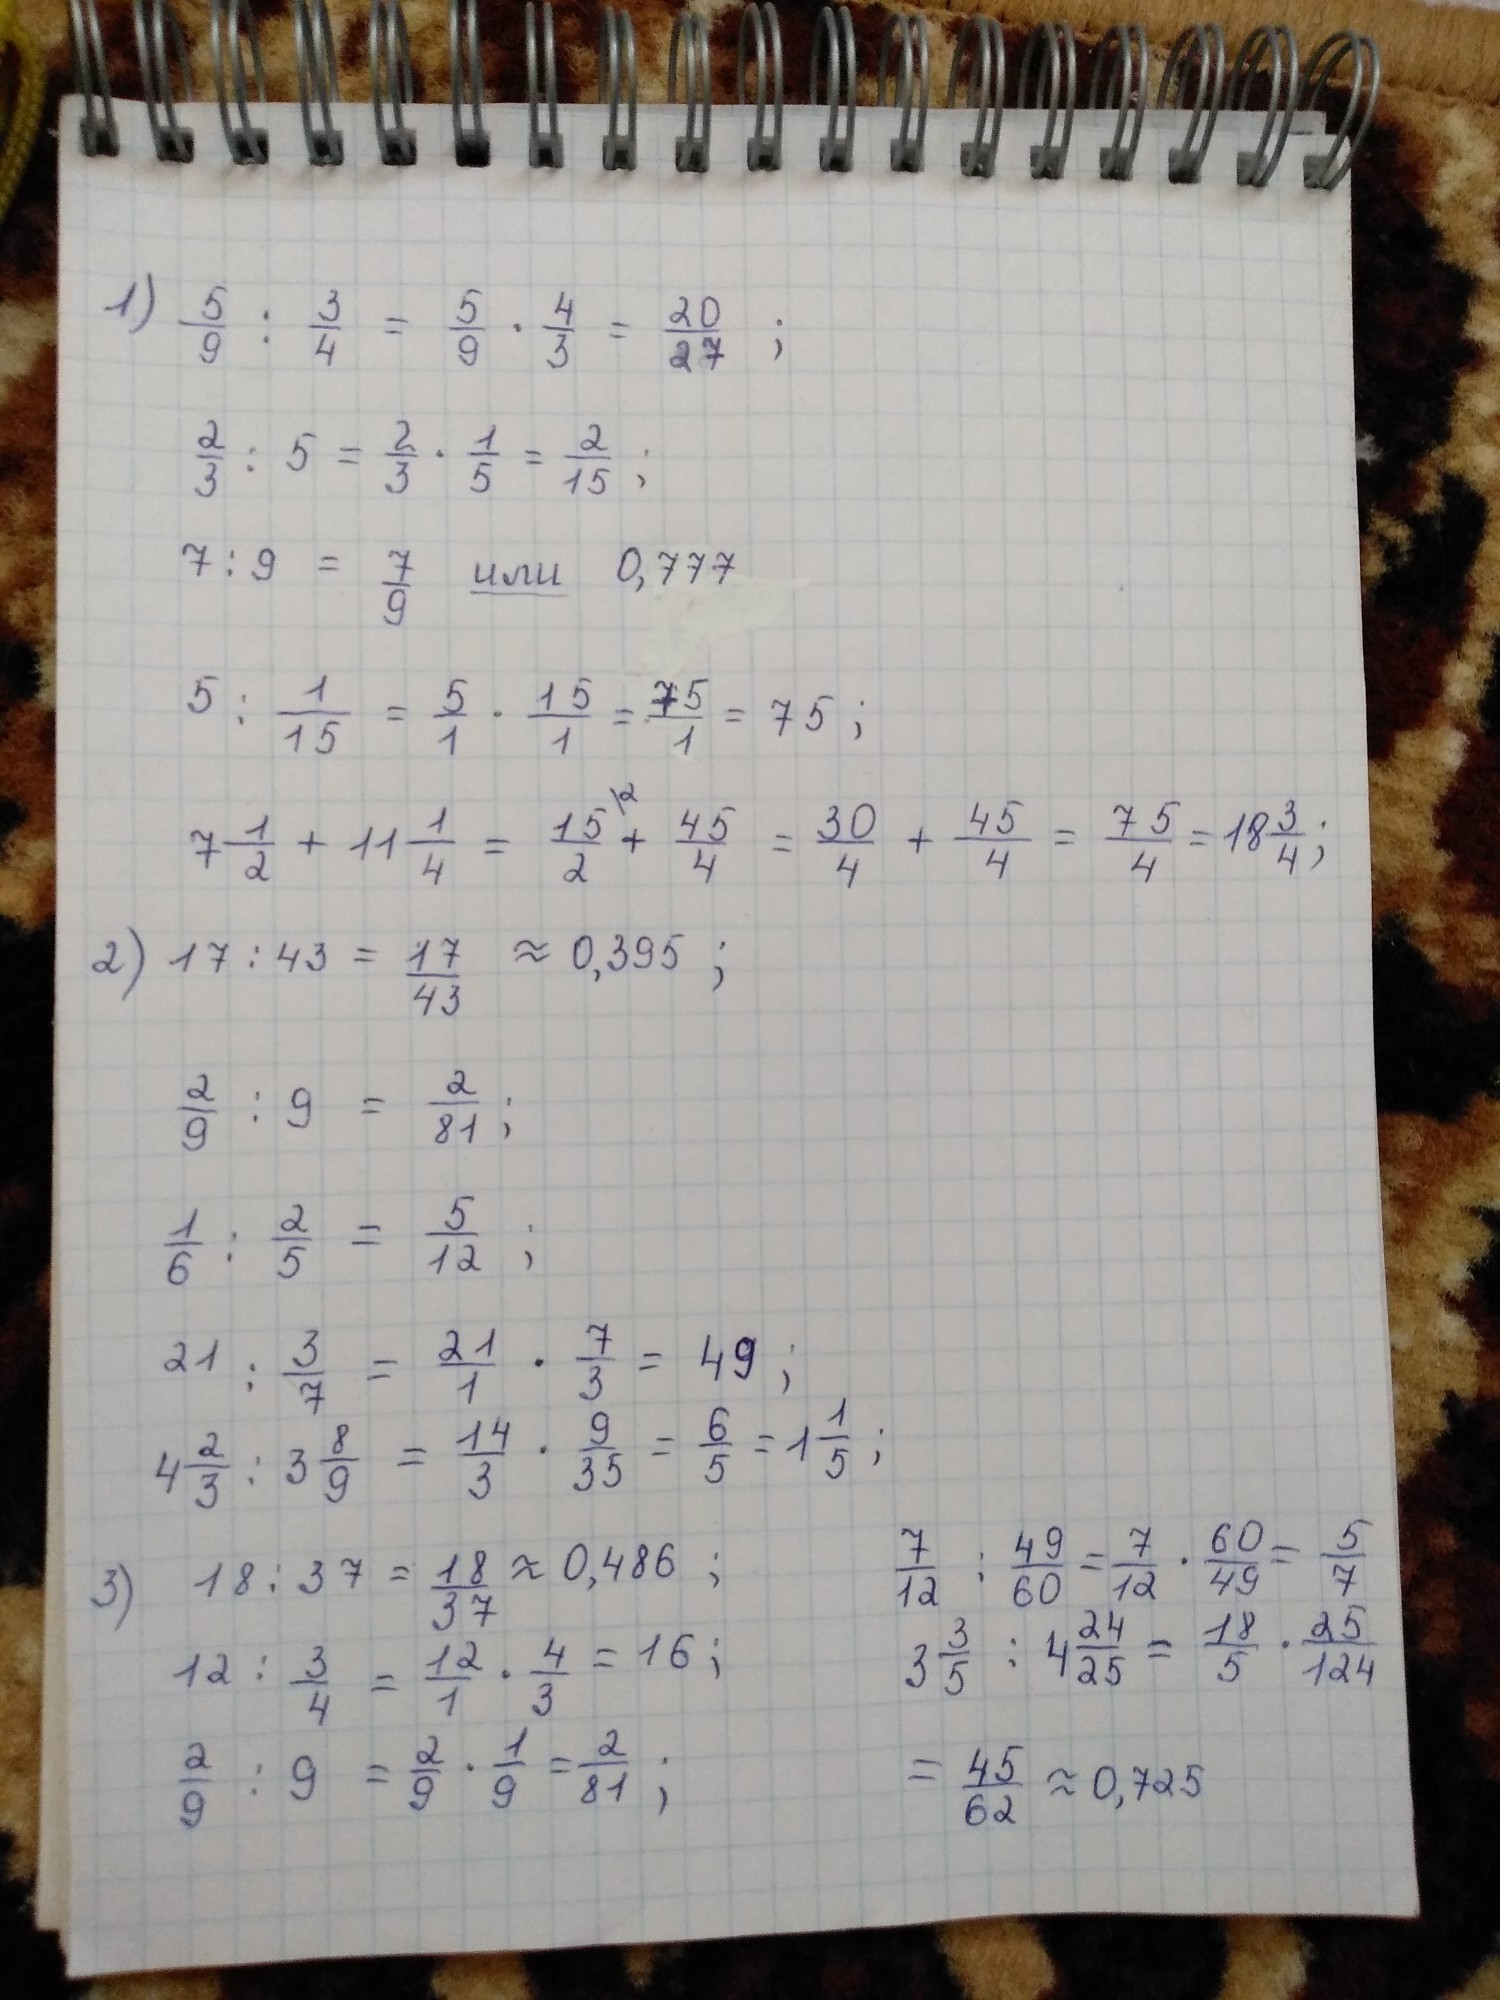 1) 5/9 : 3/4 = 5/9 · 4/3 = 20/27 ;
2/3 : 5 = 2/3 · 1/5 = 2/15 ;
7 : 9 = 7/9 или 0,777
5 : 1/15 = 5/1 · 15/1 = 75/1 = 75 ;
7 1/2 + 11 1/4 = 15/2 \2 + 45/4 = 30/4 + 45/4 = 75/4 = 18 3/4 ;
2) 17 : 43 = 17/43 ≈ 0,395 ;
2/9 : 9 = 2/81 ;
1/6 : 2/5 = 5/12 ;
21 : 3/7 = 21/1 · 7/3 = 49 ;
4 2/3 : 3 8/9 = 14/3 · 9/35 = 6/5 = 1 1/5 ;
3) 18 : 37 = 18/37 ≈ 0,486 ;
12 : 3/4 = 12/1 · 4/3 = 16 ;
2/9 : 9 = 2/9 · 1/9 = 2/81 ;
7/12 : 49/60 = 7/12 · 60/49 = 5/7
3 3/5 : 4 24/25 = 18/5 · 25/124
= 45/62 ≈ 0,725